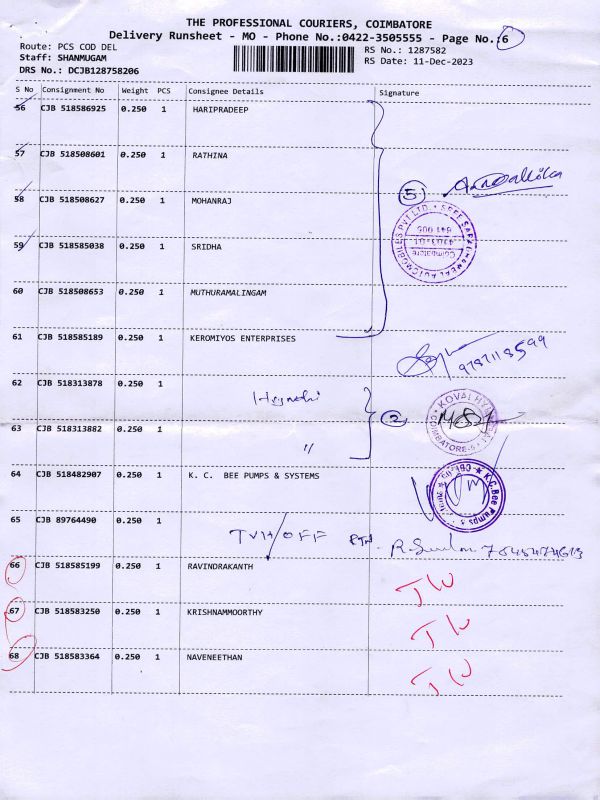 THE PROFESSIONAL COURIERS, COIMBATORE
Delivery Runsheet - MO - Phone No.:0422-3505555 - Page No.:6
Route: PCS COD DEL
RS No.: 1287582
Staff: SHANMUGAM
RS Date: 11-Dec-2023
DRS No.: DCJB128758206
S No Consignment No Weight PCS Consignee Details Signature
56 CJB 518586925 0.250 1 HARIPRADEEP
57 CJB 518508601 0.250 1 RATHINA
58 CJB 518508627 0.250 1 MOHANRAJ
5
59 CJB 518585038 0.250 1 SRIDHA
Coimbatore
641 005
60 CJB 518508653 0.250 1 MUTHURAMALINGAM
61 CJB 518585189 0.250 1 KEROMIYOS ENTERPRISES
62 CJB 518313878 0.250 1
2
63 CJB 518313882 0.250 1 "
COIMBATORE-5
64 CJB 518482907 0.250 1 K. C. BEE PUMPS & SYSTEMS
K.C.Bee Pumps &
65 CJB 89764490 0.250 1 TVH/OFF
66 CJB 518585199 0.250 1 RAVINDRAKANTH
67 CJB 518583250 0.250 1 KRISHNAMMOORTHY
68 CJB 518583364 0.250 1 NAVENEETHAN